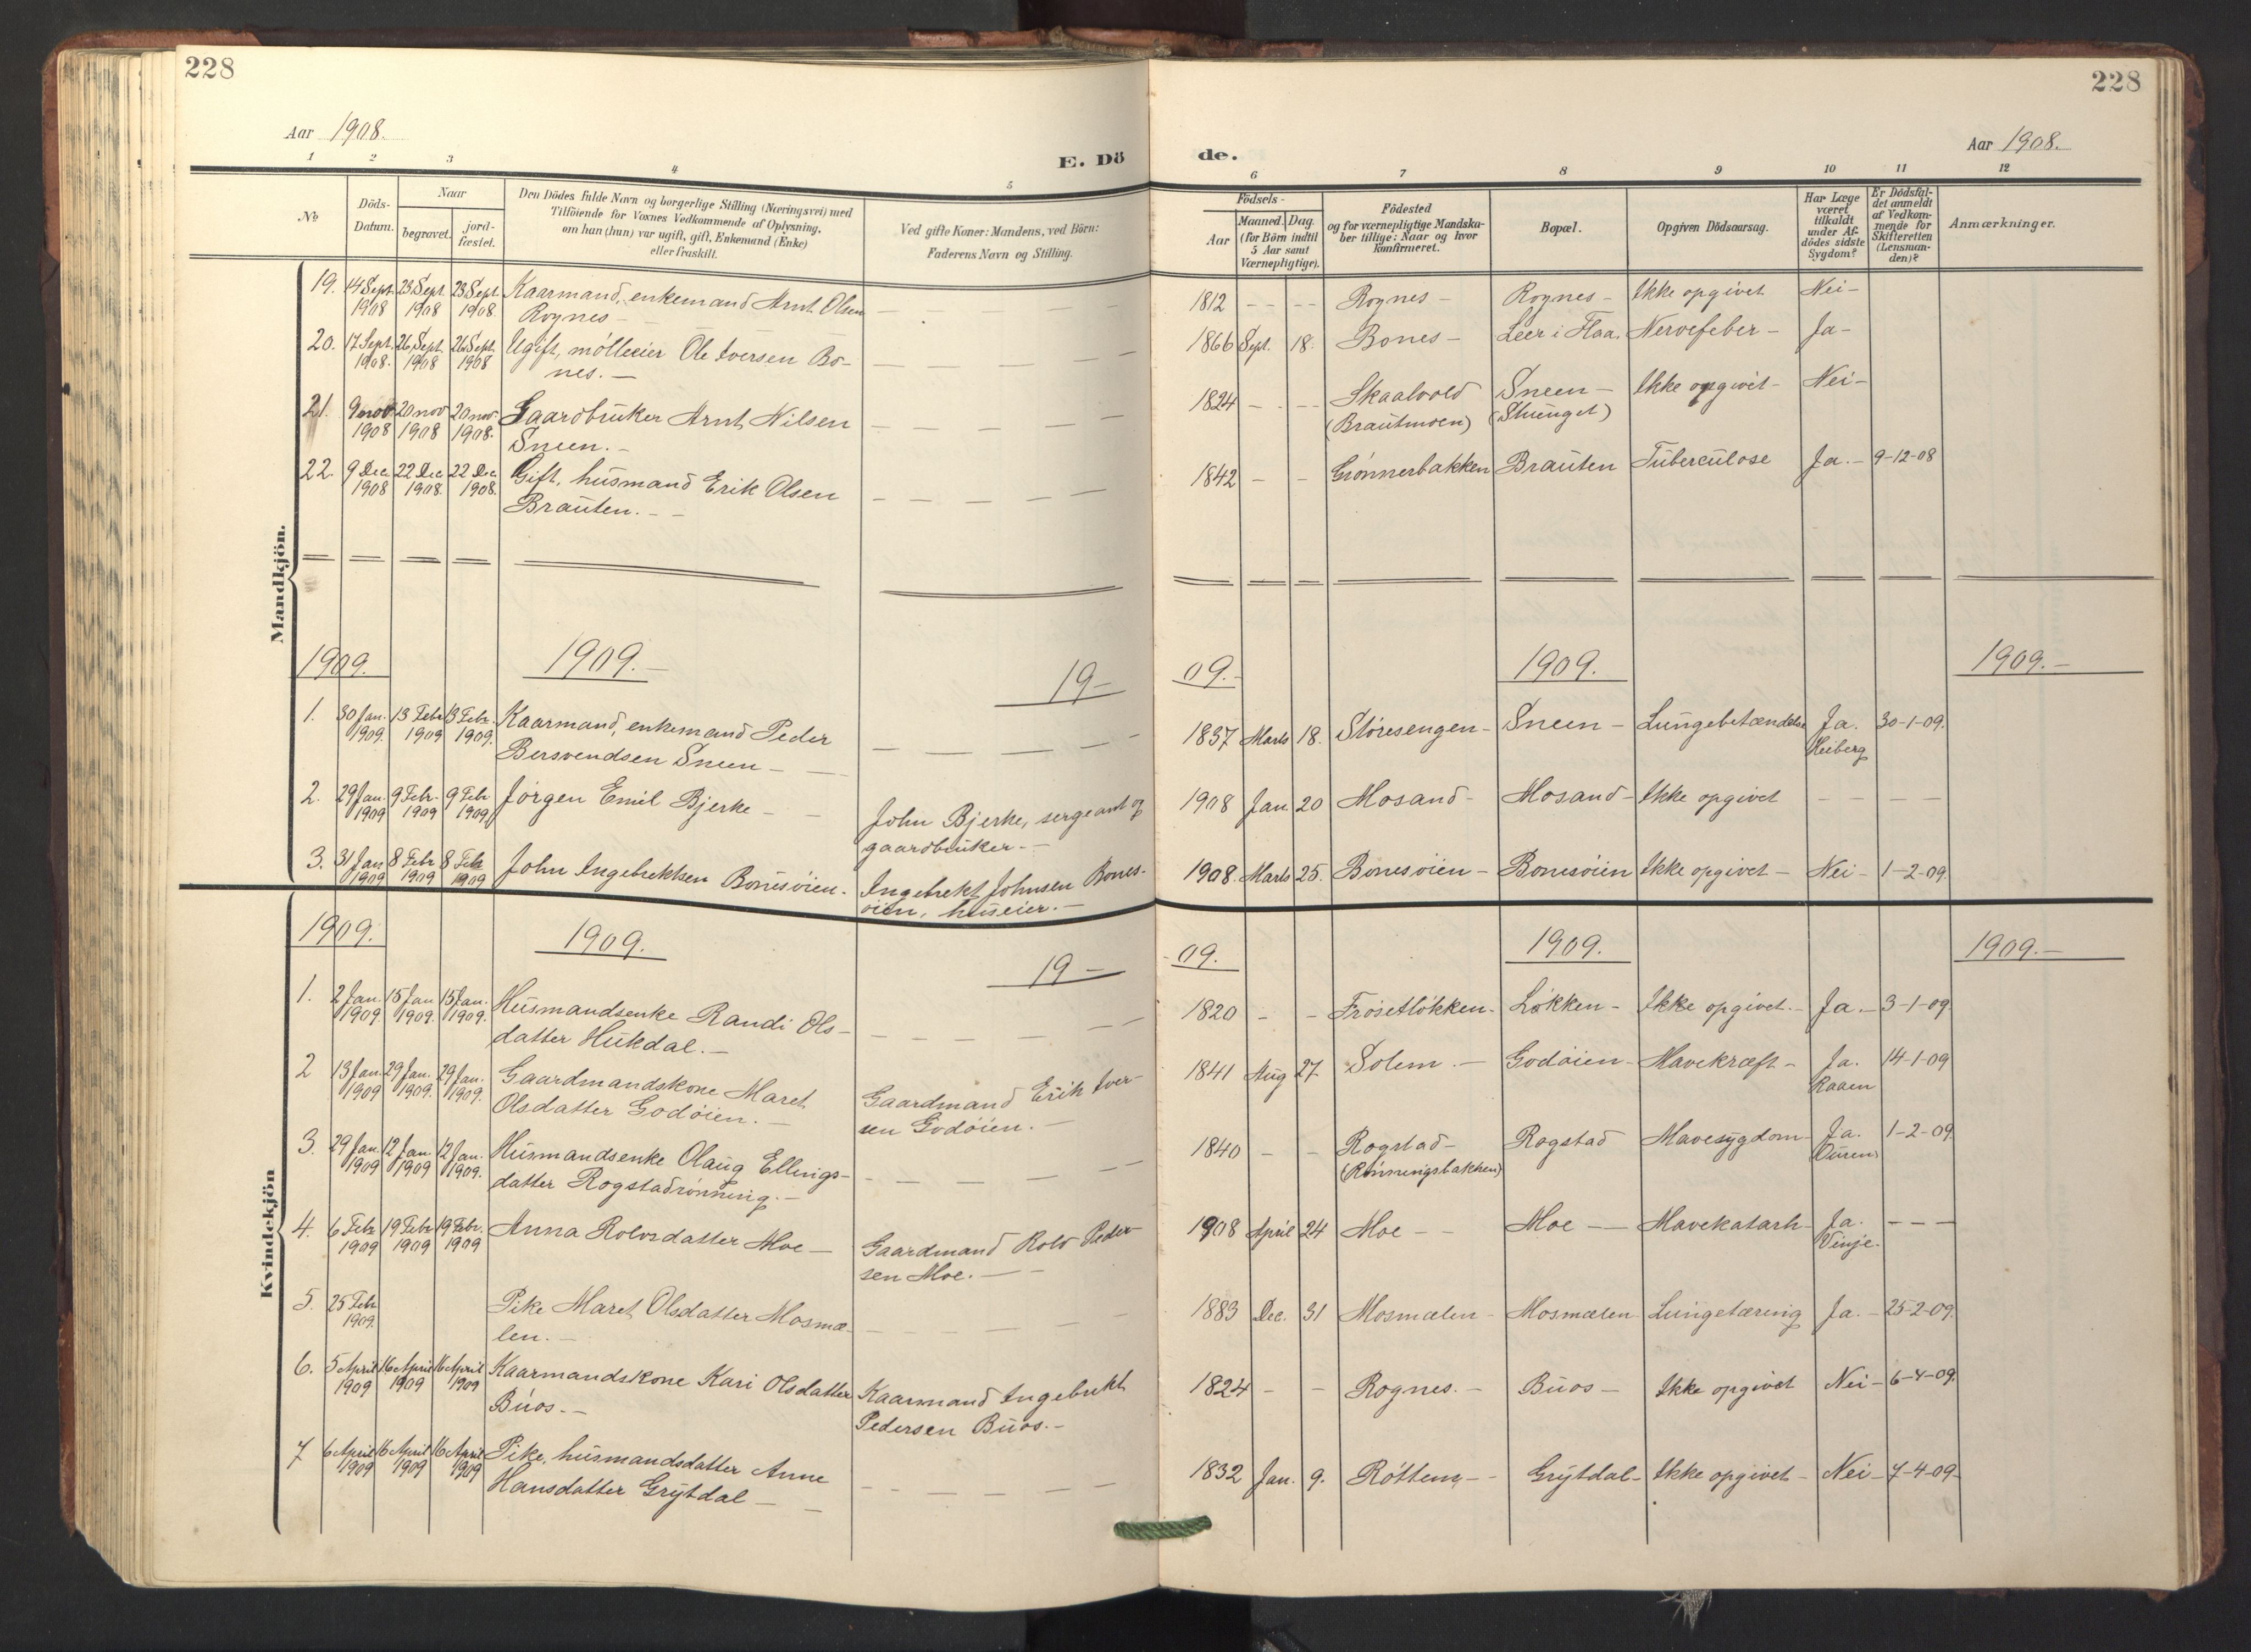 228
228
Aar 1908.
E. Dö
de.
Aar 1908.
1 2 3 4 5 6 7 8 9 10 11 12
№
Döds-
Datum.
Naar
begravet.
jord-
fæstet.
Den Dödes fulde Navn og borgerlige Stilling (Næringsvei) med
Tilföiende for Voxnes Vedkommende af Oplysning,
om han (hun) var ugift, gift, Enkemand (Enke)
eller fraskilt.
Ved gifte Koner: Mandens, ved Börn:
Faderens Navn og Stilling.
Födsels-
Aar
Maaned. Dag.
(for Börn indtil
5 Aar samt
Værnepligtige).
Födested
og for værnepligtige Mandska-
ber tillige: Naar og hvor
konfirmeret.
Bopæl.
Opgiven Dödsaarsag.
Har Læge
været
tilkaldt
under Af-
dödes sidste
Sygdom?
Er Dödsfal-
det anmeldt
af Vedkom-
mende for
Skifteretten
(Lensman-
den)?
Anmærkninger.
Mandkjön.
19. 14 Sept. 23 Sept. 23 Sept. Kaarmand, enkemand Arnt Olsen — — — — 1812 — — Rognes — Rognes — Ikke opgivet Nei —
1908 1908 1908 Rognes —
20. 17 Sept. 26 Sept. 26 Sept. Ugift, mölleeier Ole Iversen Bo- — — — — 1866 Sept. 18. Bones — Leer i Flaa. Nervefeber — Ja —
1908. 1908 1908 nes. —
21. 9 nov 20 nov 20 nov. Gaardbruker Arnt Nilsen — — — — 1824 — — Skaalvold Sneen — Ikke opgivet — Nei —
1908 1908 1908. Sneen. — (Brautmoen) (Stuenget)
22. 9 Dec. 22 Dec 22 Dec. Gift, husmand Erik Olsen — — — — 1842 — — Grönnerbakken Brauten Tuberculose Ja. — 9-12-08
1908 1908. 1908. Brauten. — —
1909. 1909. — 19 — 09. — 1909. 1909. —
1. 30 Jan. 13 Febr 13 Febr. Kaarmand, enkemand Peder — — — — 1837 Marts 18. Störesengen — Sneen — Lungebetændelse Ja. 30-1-09.
1909. 1909 1909. Bersvendsen Sneen — Heiberg
2. 29 Jan. 9 Febr. 9 Febr Jörgen Emil Bjerke — — John Bjerke, sergeant og 1908 Jan 20 Mosand — Mosand — Ikke opgivet — — — —
1909 1909 1909. gaardbruker. —
3. 31 Jan 8 Febr 8 Feb John Ingebrektsen Bonesöien. Ingebrekt Johnsen Bones- 1908. Marts 25. Bonesöien — Bonesöien Ikke opgivet — Nei — 1-2-09.
1909 1909 1909 öien, huseier. —
Kvindekjön
1909. 1909. 19 — 09. 1909. 1909. —
1. 2 Jan. 15 Jan 15 Jan. Husmandsenke Randi Ols- — — — — 1820 — — Frösetlökken. Lökken — Ikke opgivet. — Ja. — 3-1-09.
1909. 1909. 1909. datter Hukdal. —
2 13 Jan. 29 Jan. 29 Jan. Gaardmandskone Maret Gaardmand Erik Iver- 1841 Aug 27. Solem. — Godöien — Mavekræft — Ja. 14-1-09
1909 1909. 1909. Olsdatter Godöien. — sen Godöien. — Raaen
3. 29 Jan. 12 Jan. 12 Jan. Husmandsenke Olaug Ellings- — — — — 1840 — — Rogstad — Rogstad Mavesygdom Ja. 1-2-09.
1909 1909 1909. datter Rogstadrönning. — (Rönningsbakken)
4. 6 Febr 19 Febr 19 Febr. Anna Rolvsdatter Moe — Gaardmand Rolv Peder- 1908 April 24 Moe — — Moe — Mavekatarh Ja. — — —
1909 1909 1909 sen Moe. — — Vinje.
5. 25 Feb Pike Maret Olsdatter Mosmæ- — — — — 1883 Dec. 31 Mosmælen — Mosmælen Lungetæring Ja. — 25-2-09.
1909. len. —
6. 5 April 16 April 16 April Kaarmandskone Kari Olsdatter Kaarmand Ingebrekt 1824 — — Rognes. — Buos — Ikke opgivet Nei — 6-4-09.
1909 1909 1909 Buos. — Pedersen Buos. —
7 6 April 16 April 16 April Pike, husmandsdatter Anne — — — — 1832 Jan. 9. Röttem — — Grytdal — Ikke opgivet — Nei — 7-4-09
1909 1909 1909 Hansdatter Grytdal — —